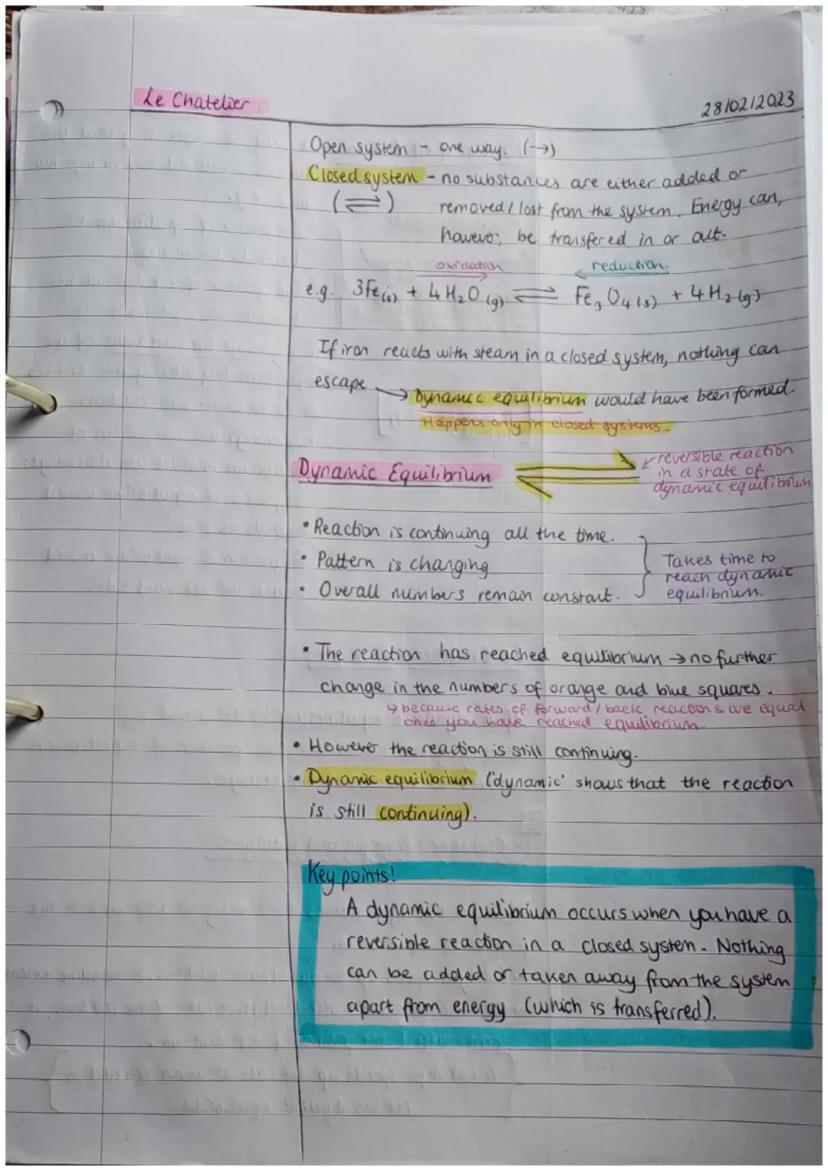 Le Chatelier
28/02/2023
Open system - one way. (→)
Closed system - no substances are either added or
(⇌) removed/lost from the system. Energy can,
however, be transfered in or out.
oxidation reduction.
e.g. 3Fe(s) + 4H₂O(g) ⇌ Fe₃O₄(s) + 4H₂(g)
If iron reacts with steam in a closed system, nothing can
escape → Dynamic equilibrium would have been formed.
Happens only in closed systems.
Dynamic Equilibrium
reversible reaction
in a state of
dynamic equilibrium
• Reaction is continuing all the time.
• Pattern is changing
• Overall numbers remain constant.
Takes time to
reach dynamic
equilibrium.
• The reaction has reached equilibrium → no further
change in the numbers of orange and blue squares.
↳ because rates of forward/back reactions are equal
ones you have reached equilibrium
• However the reaction is still continuing.
• Dynamic equilibrium ('dynamic' shows that the reaction
is still continuing).
Key points!
A dynamic equilibrium occurs when you have a
reversible reaction in a closed system. Nothing
can be added or taken away from the system
apart from energy (which is transferred).